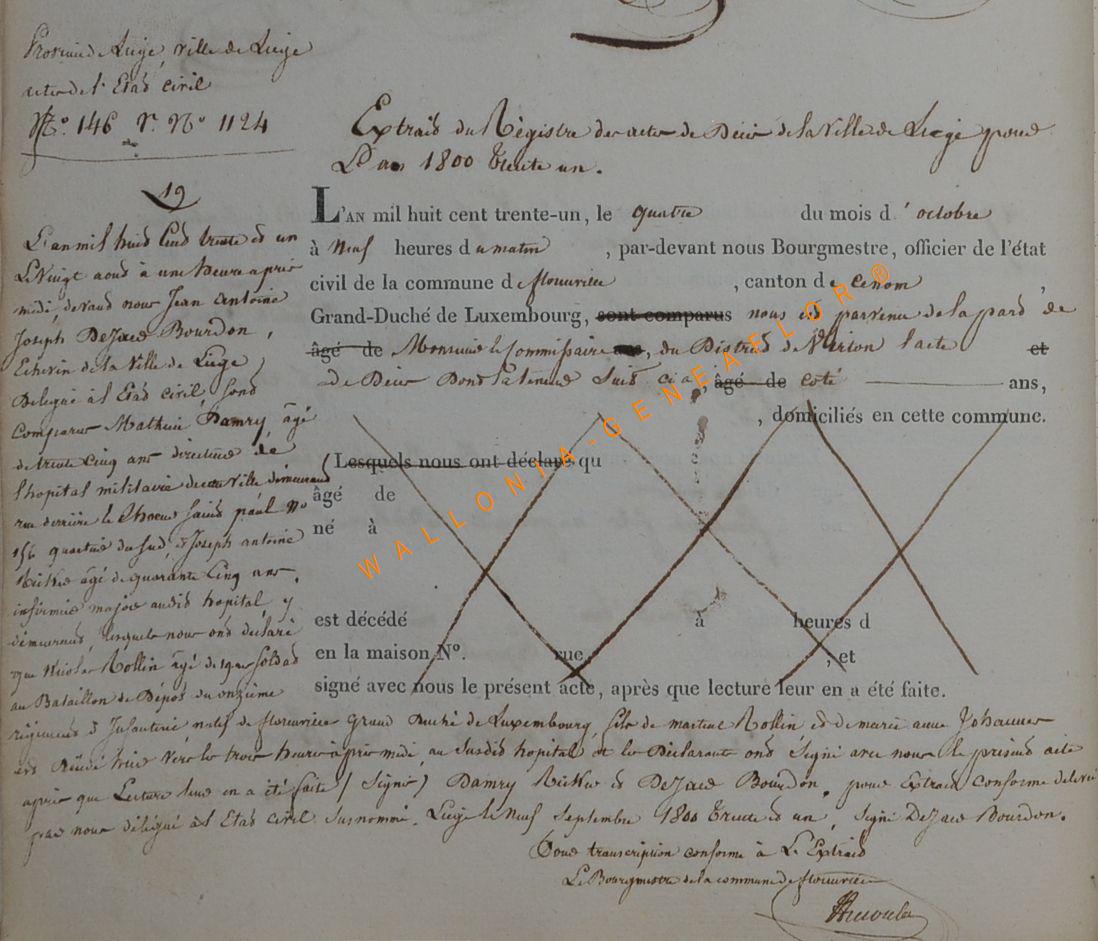 Province de Liége, ville de Liége
actes de l'Etat civil
N.º 146 V. Nº 1124
Extrait du Régistre des actes de Décès de la ville de Liége pour
L'an 1800 trente un.
19
L'an mil huit cent trente et un
Le Vingt aout à une heure après
midi, devant nous Jean Antoine
Joseph DeJace Bourdon,
Echevin de la Ville de Liége,
Délégué à l'Etat civil, sont
comparus Mathieu Damry, âgé
de trente cinq ans directeur de
l'hopital militaire de cette ville demeurant
rue derrière le Choeur Saint paul Nº
156 quartier du sud, et Joseph antoine
âgé de quarante Cinq ans,
infirmier major audit hopital, y
demeurant, lesquels nous ont déclaré
que Nicolas Rollin âgé de 19 ans soldat
au Bataillon de Dépôt du onzième
L'AN mil huit cent trente-un, le quatre du mois d'octobre
à Neuf heures du matin, par-devant nous Bourgmestre, officier de l'état
civil de la commune de florenville, canton de
Grand-Duché de Luxembourg, sont comparus nous est parvenu de la part de
âgé de Monsieur le Commissaire, du District de Virton l'acte et
de Décès Dont la teneur suit ci à, âgé de coté ans,
, domiciliés en cette commune.
Lesquels nous ont déclaré qu
âgé de
né à
est décédé à heures d
en la maison Nº. rue, , et
signé avec nous le présent acte, après que lecture leur en a été faite.
régiment d'Infanterie, natif de florenville Grand Duché de Luxembourg, fils de martin Rollin, et de marie anne
est Décédé hier vers les trois heures après midi, au susdit hopital et les Déclarants ont signé avec nous le présent acte
après que Lecture leur en a été faite (signé) Damry et DeJace Bourdon, pour Extrait conforme délivré
par nous délégué à l'Etat civil susnommé. Liége le Neuf Septembre 1800 trente et un, signé DeJace Bourdon.
Pour transcription conforme à L'Extrait
Le Bourgmestre de la commune de florenville
WALLONIA-GENEAFLOR®